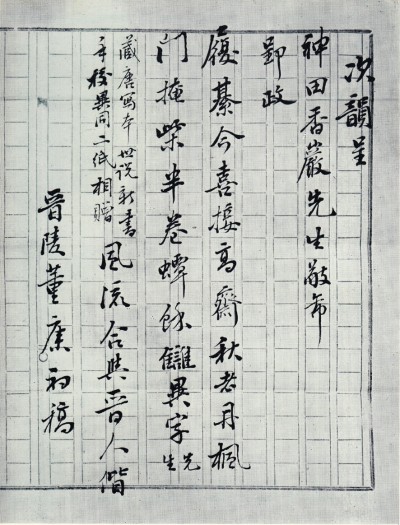 次韻呈
神田香巖先生敬希
郢政
履綦今喜接高齋秋老丹楓
門掩柴半卷蟫餘讎異字先生
藏唐寫本世説新書
手校異同二紙相贈
風流合與晋人偕
晉陵董康初稿